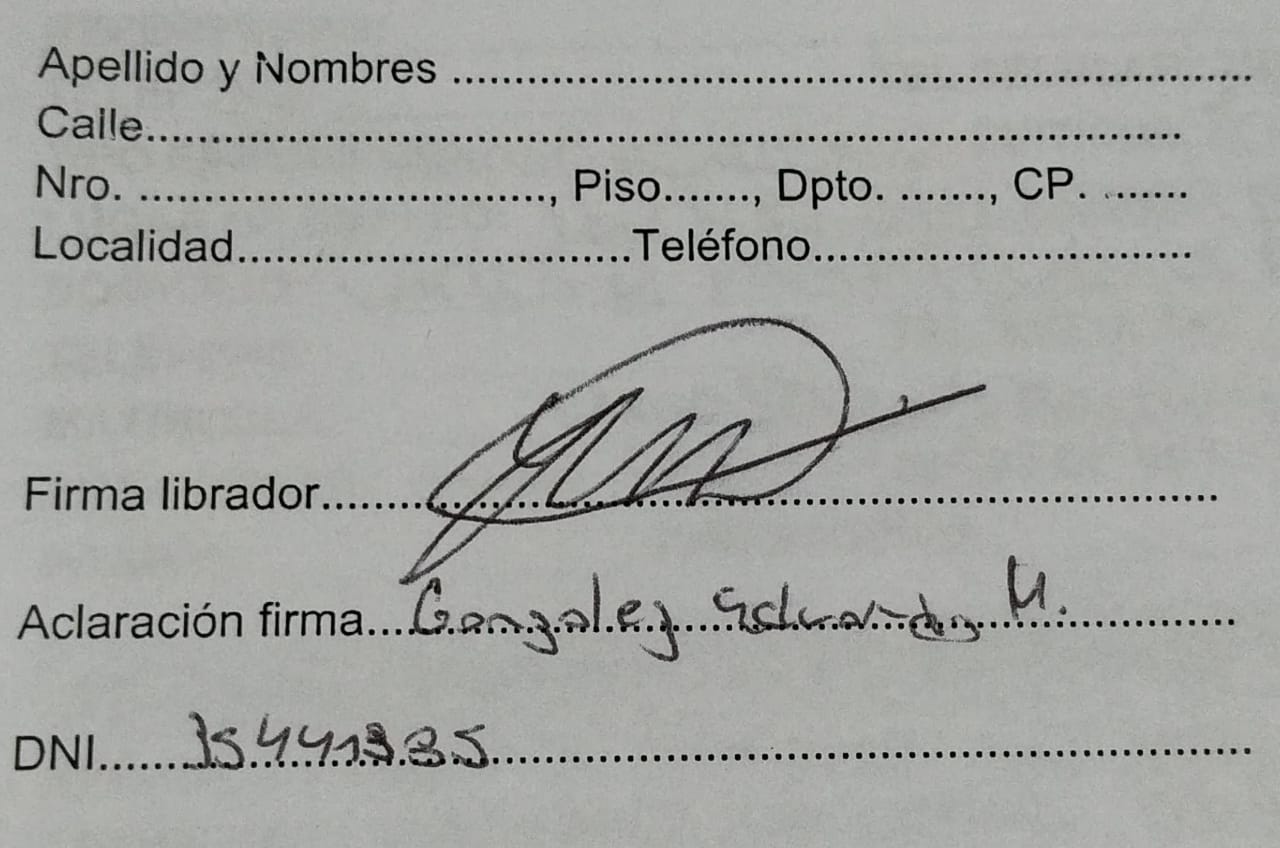 Apellido y Nombres ................................................................
Calle....................................................................................
Nro. .................................., Piso......., Dpto. ......., CP. .......
Localidad...............................Teléfono..............................
Firma librador........................................................................
Aclaración firma....Gonzalez Eduardo M.
DNI.......